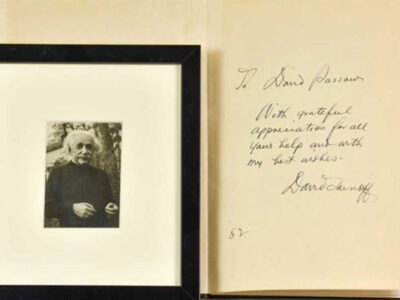 To David Passow
With grateful
appreciation for all
your help and with
my best wishes.
David Sarnoff
'52